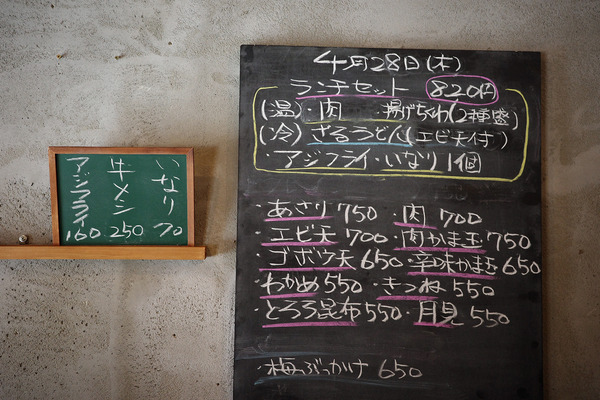 4月28日(木)
ランチセット 820円
(温)・肉 ・揚げちくわ(2種盛)
(冷)ざるうどん(エビ天付)
・アジフライ・いなり1個
・あさり750 ・肉 700
・エビ天 700 ・肉かま玉 750
・ゴボウ天 650 ・辛味かま玉 650
・わかめ 550 ・きつね 550
・とろろ昆布 550 ・月見 550
・梅ぶっかけ 650
いなり 70
牛メン 250
アジフライ 160